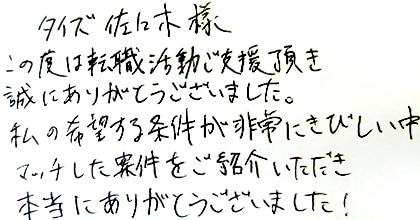 タイズ 佐々木 様
この度は転職活動ご支援頂き
誠にありがとうございました。
私の希望する条件が非常にきびしい中
マッチした案件をご紹介いただき
本当にありがとうございました!